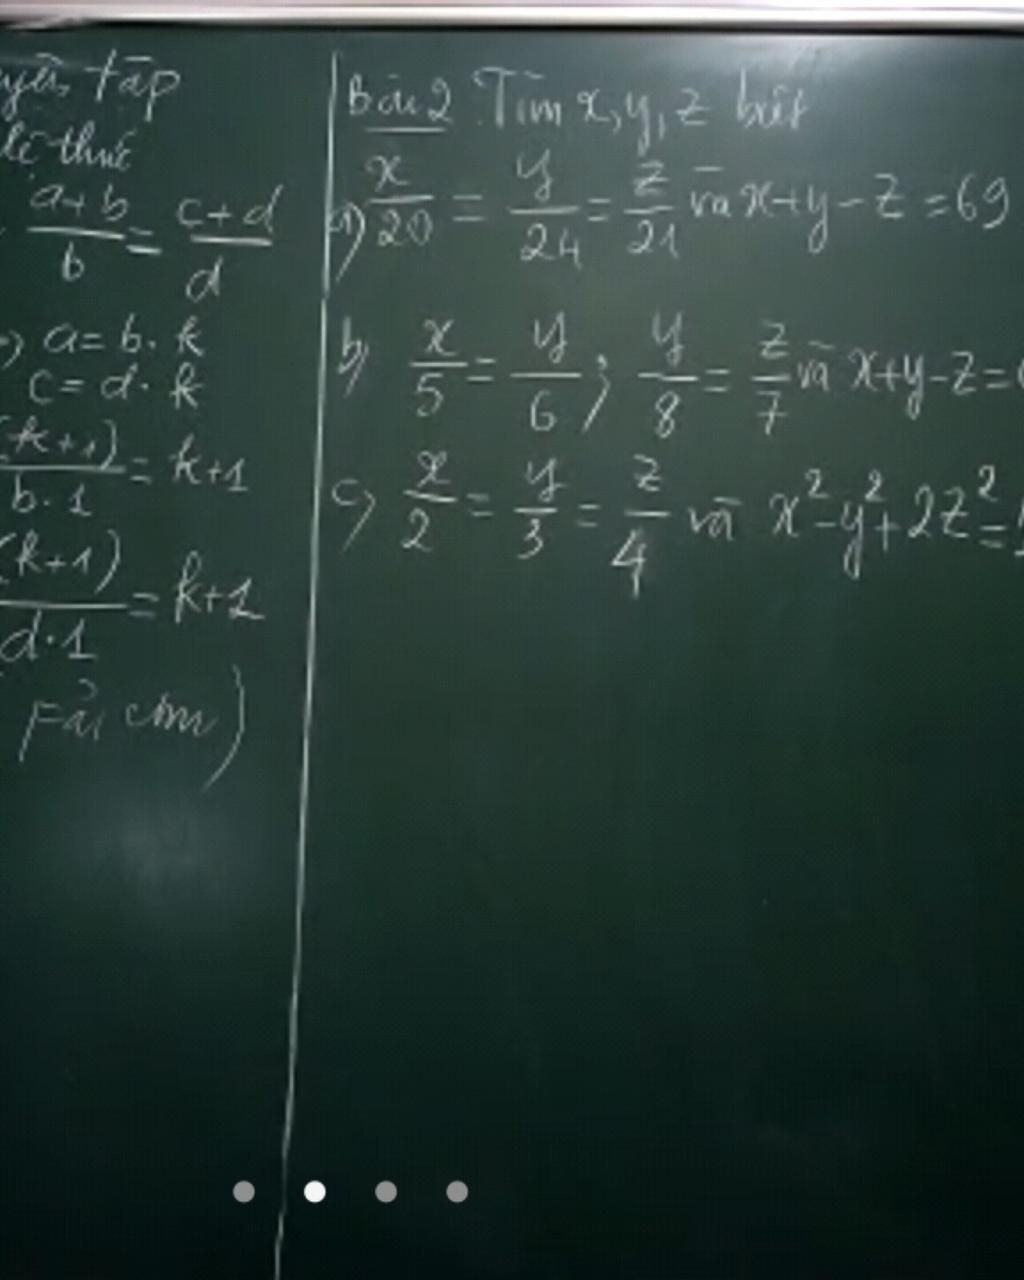 tập
thức
a+b/b = c+d/d
a = b. k
c = d. k
(k+1)/b.1 = k+1
(k+1)/d.1 = k+1
Bài 2 Tìm x, y, z biết
a) x/20 = y/24 = z/21 và x+y-z = 69
b) x/5 = y/6 ; y/8 = z/7 và x+y-z =
c) x/2 = y/3 = z/4 và x²-y²+2z² =